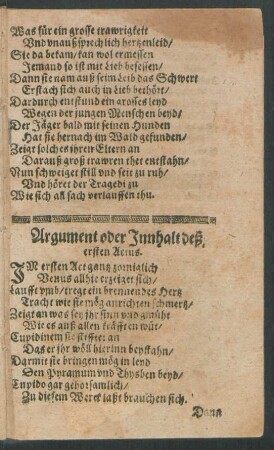 Was für ein grosse trawrigkeit
Vnd vnaußsprechlich hertzenleid/
Sie da bekam/ kan wol ermessen
Jemand so ist mit Lieb besessen/
Dann sie nam auß seim Leib das Schwert
Erstach sich auch in Lieb bethört/
Dardurch entstund ein grosses leyd
Wegen der jungen Menschen beyd/
Der Jäger bald mit seinen Hunden
Hat sie hernach im Wald gefunden/
Zeigt solches jhren Eltern an
Darauß groß trawren thet entstahn/
Nun schweiget still vnd seit zu ruh/
Vnd höret der Tragedi zu
Wie sich all sach verlauffen thu.
Argument oder Innhalt deß
ersten Actus.
IM ersten Act gantz zorniglich
Venus allhie erzeiget sich/
Laufft vmb/ tregt ein brennendes Hertz
Tracht wie sie mög anrichten schmertz/
Zeigt an was sey jhr sinn vnd gmüht
Wie es auß allen kräfften wüt/
Cupidinem sie stifftet an
Das er jhr wöll hierinn beystahn/
Darmit sie bringen mög in leyd
Den Pyramum vnd Thysben beyd/
Cupido gar gehorsamlich/
Zu diesem Werck laßt brauchen sich.
Dann